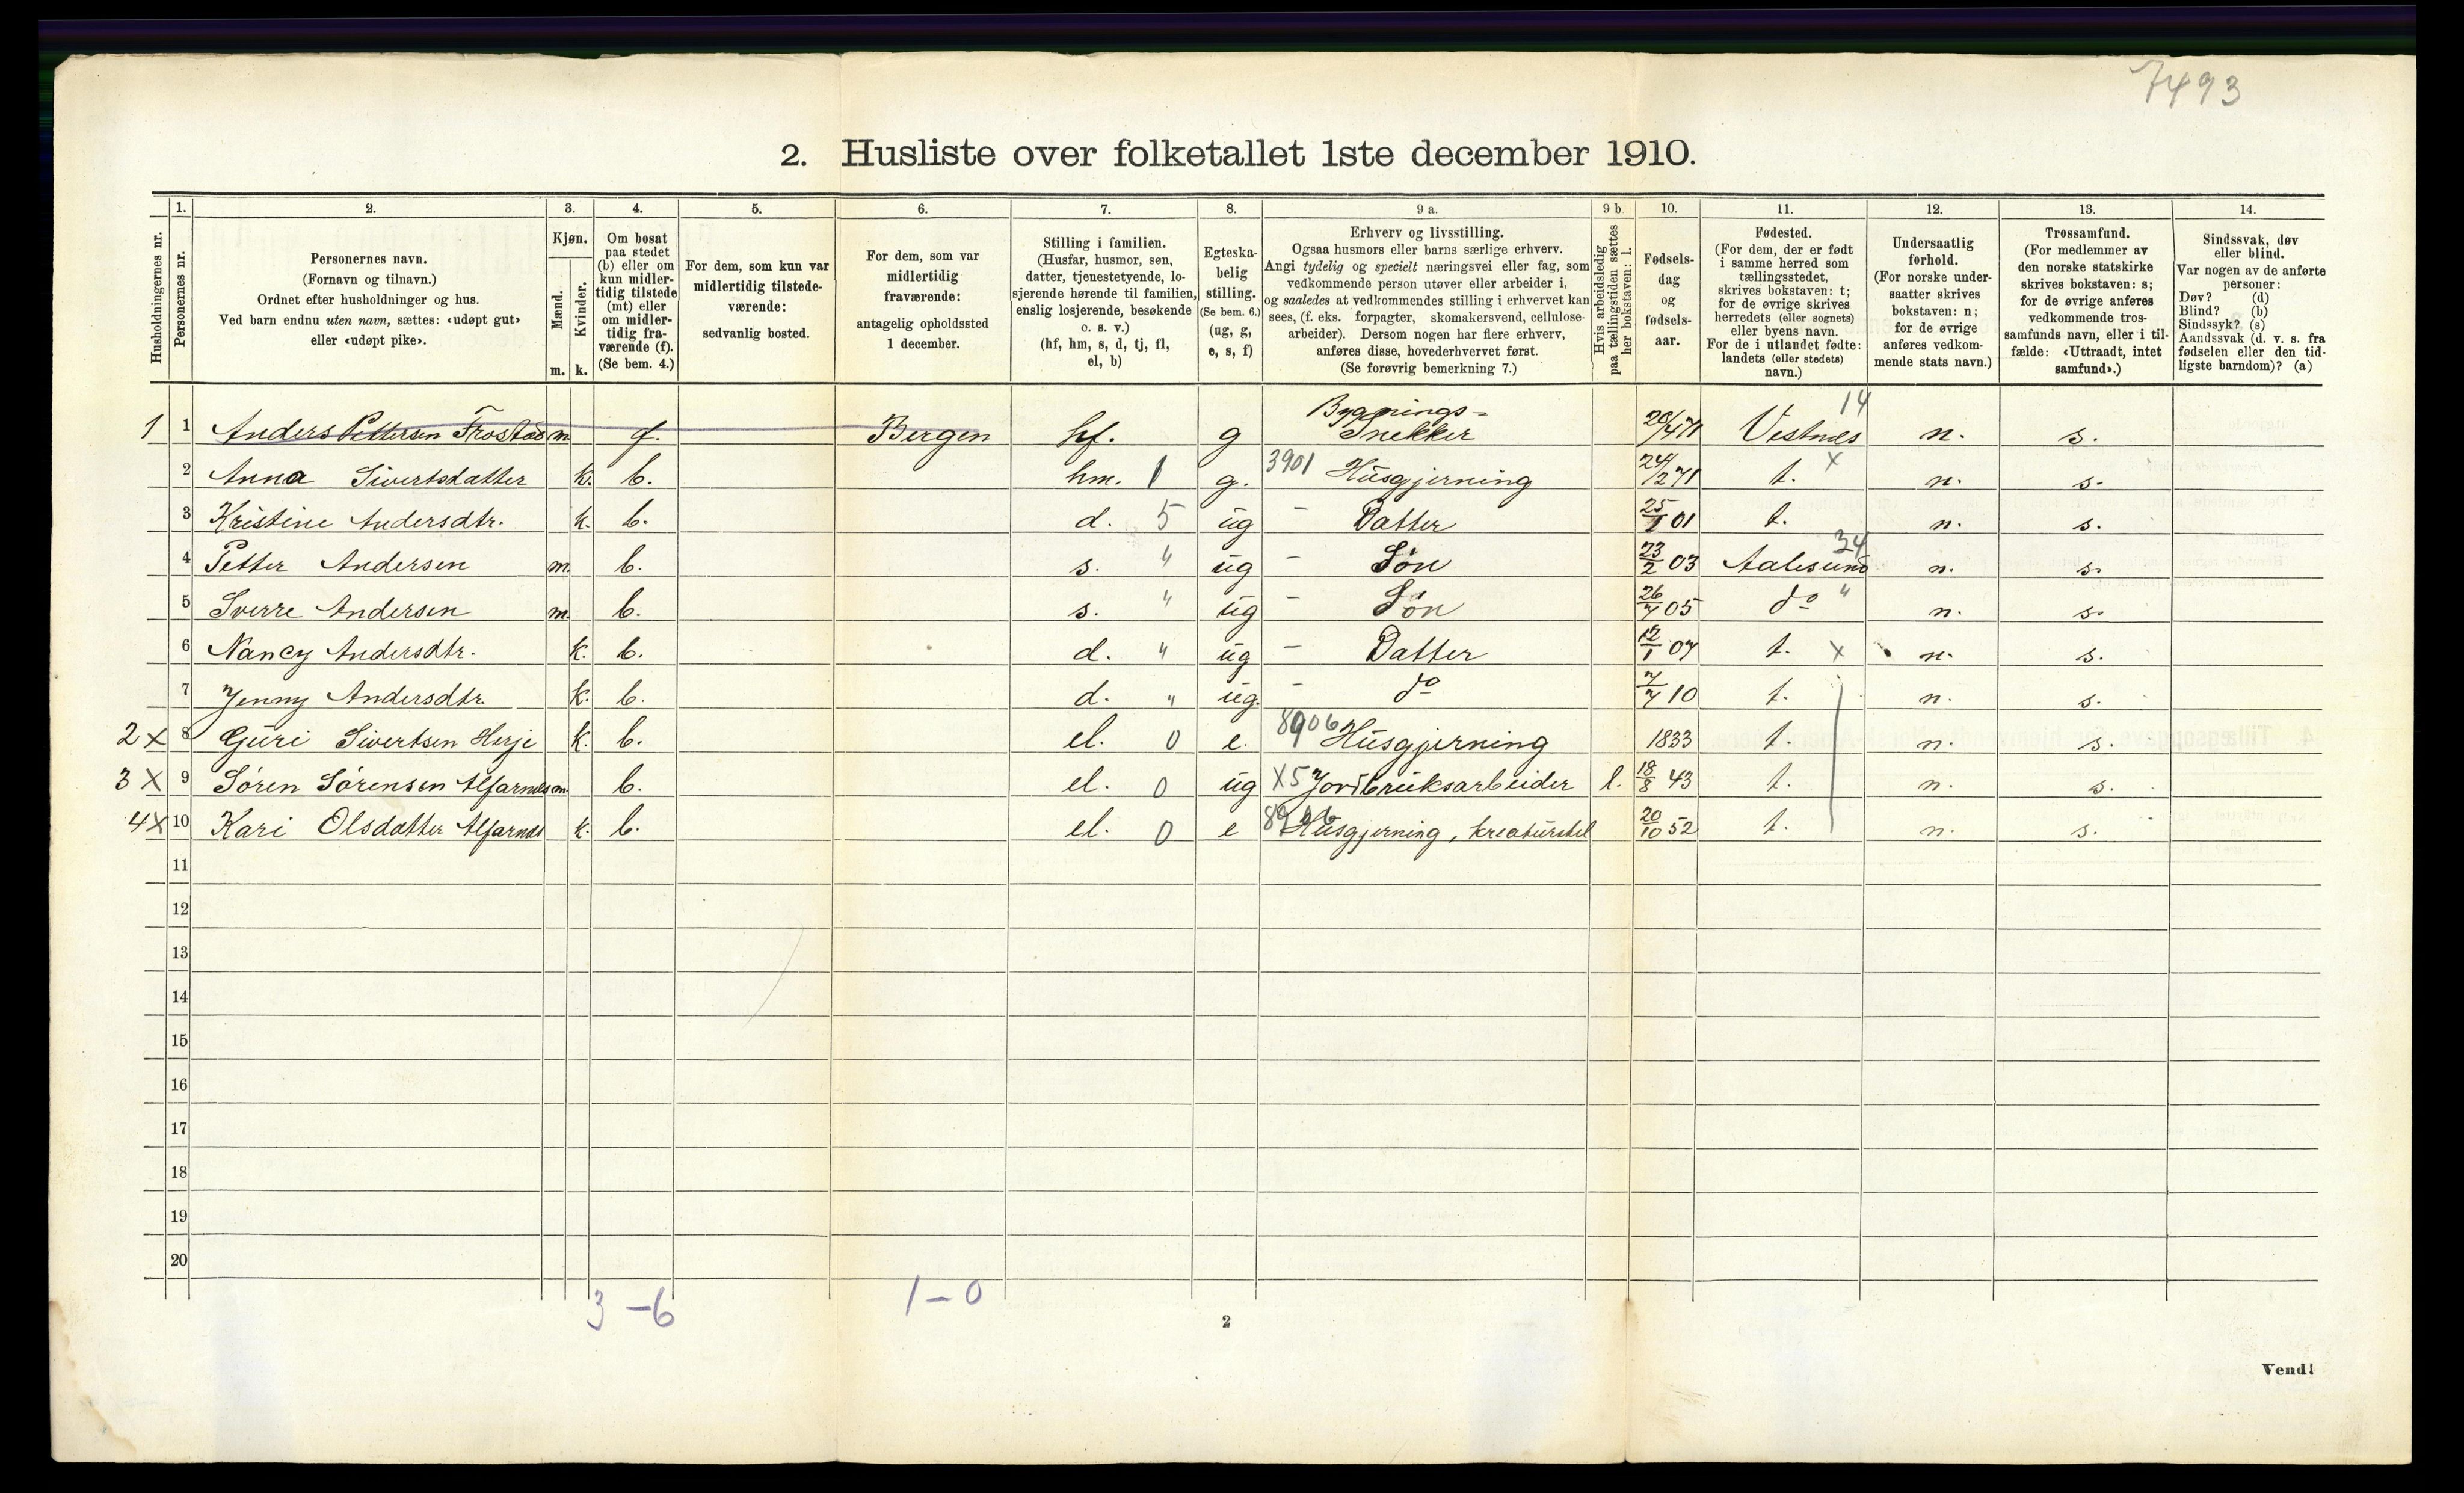 7493
2. Husliste over folketallet 1ste december 1910.
Husholdningernes nr.
1.
Personernes nr.
2.
Personernes navn.
(Fornavn og tilnavn.)
Ordnet efter husholdninger og hus.
Ved barn endnu uten navn, sættes: «udøpt gut»
eller «udøpt pike».
3.
Kjøn.
Mænd.
Kvinder.
m. k.
4.
Om bosat
paa stedet
(b) eller om
kun midler-
tidig tilstede
(mt) eller
om midler-
tidig fra-
værende (f).
(Se bem. 4.)
5.
For dem, som kun var
midlertidig tilstede-
værende:
sedvanlig bosted.
6.
For dem, som var
midlertidig
fraværende:
antagelig opholdssted
1 december.
7.
Stilling i familien.
(Husfar, husmor, søn,
datter, tjenestetyende, lo-
sjerende hørende til familien,
enslig losjerende, besøkende
o. s. v.)
(hf, hm, s, d, tj, fl,
el, b)
8.
Egteska-
belig
stilling.
(Se bem. 6.)
(ug, g,
e, s, f)
9 a.
Erhverv og livsstilling.
Ogsaa husmors eller barns særlige erhverv.
Angi tydelig og specielt næringsvei eller fag, som
vedkommende person utøver eller arbeider i,
og saaledes at vedkommendes stilling i erhvervet kan
sees, (f. eks. forpagter, skomakersvend, cellulose-
arbeider). Dersom nogen har flere erhverv,
anføres disse, hovederhvervet først.
(Se forøvrig bemerkning 7.)
9 b.
Hvis arbeidsledig
paa tællingstiden sættes
her bokstaven: l.
10.
Fødsels-
dag
og
fødsels-
aar.
11.
Fødested.
(For dem, der er født
i samme herred som
tællingsstedet,
skrives bokstaven: t;
for de øvrige skrives
herredets (eller sognets)
eller byens navn.
For de i utlandet fødte:
landets (eller stedets)
navn.)
12.
Undersaatlig
forhold.
(For norske under-
saatter skrives
bokstaven: n;
for de øvrige
anføres vedkom-
mende stats navn.)
13.
Trossamfund.
(For medlemmer av
den norske statskirke
skrives bokstaven: s;
for de øvrige anføres
vedkommende tros-
samfunds navn, eller i til-
fælde: «Uttraadt, intet
samfund».)
14.
Sindssvak, døv
eller blind.
Var nogen av de anførte
personer:
Døv? (d)
Blind? (b)
Sindssyk? (s)
Aandssvak (d. v. s. fra
fødselen eller den tid-
ligste barndom)? (a)
1 1 Anders Pettersen Frostad m f. Bergen hf. g Bygnings- Snekker 20/4 71 Vestnes 14 n. s.
2 Anna Sivertsdatter k. b. hm. 1 g. 3901 Husgjerning 24/2 71 t. x n. s.
3 Kristine Andersdtr. k. b. d. 5 ug - Datter 25/1 01 t. n. s.
4 Petter Andersen m. b. s. " ug - Søn 23/2 03 Aalesund 34 n. s.
5 Sverre Andersen m. b. s. " ug - Søn 26/7 05 do " n. s.
6 Nancy Andersdtr. k. b. d. " ug - Datter 12/1 07 t. x n. s.
7 Jenny Andersdtr. k. b. d. " ug. - do 7/7 10 t. n. s.
2 x 8 Guri Sivertsen Herje k. b. el. 0 e. 8906 Husgjerning 1833 t. n. s.
3 x 9 Søren Sørensen Alfarnes m. b. el. 0 ug X5 Jordbruksarbeider l. 18/8 43 t. n. s.
4 x 10 Kari Olsdatter Alfarnes k. b. el. 0 e 8906 Husgjerning, kreaturstel 20/10 52 t. n. s.
11
12
13
14
15
16
17
18
19
20
3 - 6 1 - 0
2
Vend!